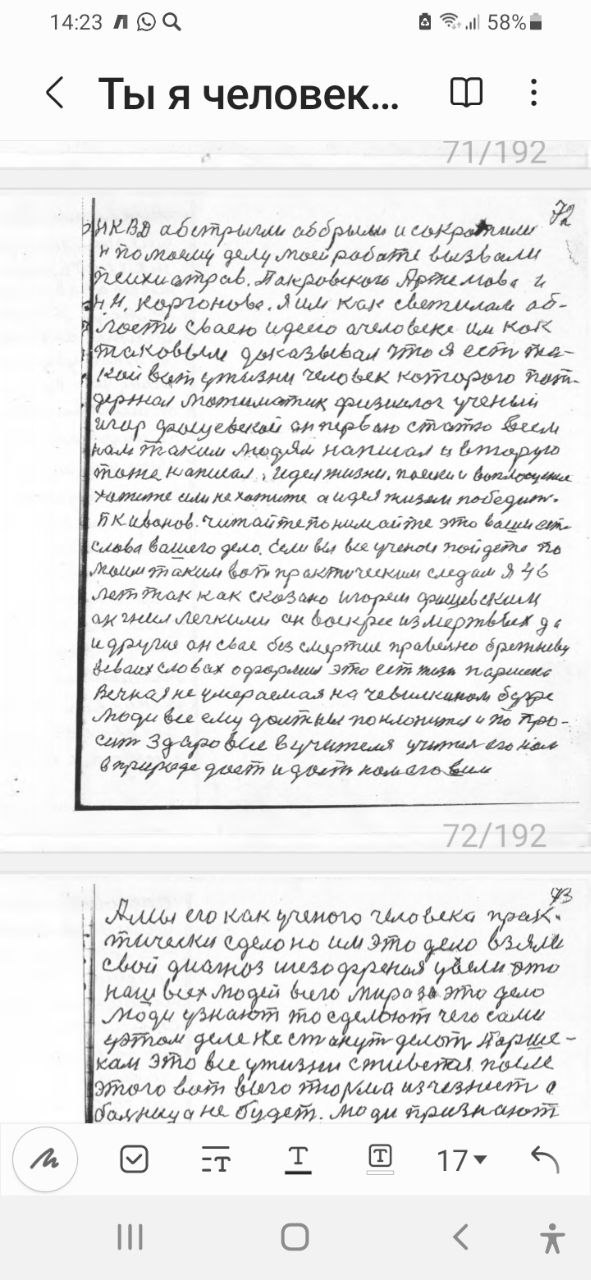 14:23
58%
Ты я человек...
71/192
72
НКВД абстригли аббрыли и сократили
и помоему делу моей работе вызвали
психиатров. Пакровского Артемова и
Н.Н. Коргонова. Я им как светилам об-
ласти сваею идею ачеловеке им как
таковым даказывал что я есть та-
кой вот ужизни человек которого под-
держал матиматик физиолог ученый
игар он первою статю всем
нам таким людям написал и вторую
тоже написал. идея жизни. поиски и воплощение
хотите или не хотите а идея жизни победит.
П К иванов. читайте понимайте это ваши
слова вашего дело. Если вы все ученои пойдете по
моим таким вот практическим следам я 46
лет так как сказано игорем
он легкими он воскрес из мертвых да
и другие он свае без смертие правельно брежневу
всваих словах это ест
Вечная не умераемая на чевилкином бугре
Люди все ему должны поклонится и по про-
сит Здаровие вучителя учител его нам
вприроде даст и даст нам его
72/192
73
А мы его как ученого человека прак-
тически сделоно им это дело взяли
свой диагноз увели это
наш всех людей всего мира за это дело
Люди узнают то сделают чего сами
уэтом деле не станут делат Парше-
кам это все ужизни после
этого вот всего тюрма изчезнет а
балница не будет. люди признают
17